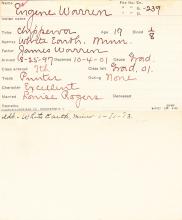 Name Eugene Warren File No. Ex. - 239
Tribe Chippewa Age 19 Blood 1/8
Agency White Earth, Minn.
Father James Warren
Arrived 8-25-97 Departed 10-4-01 Cause Grad.
Class entered 7th Class left Grad, 01.
Trade Printer Outing None
Character Excellent
Married Louise Rogers Deceased
Add - White Earth, Minn